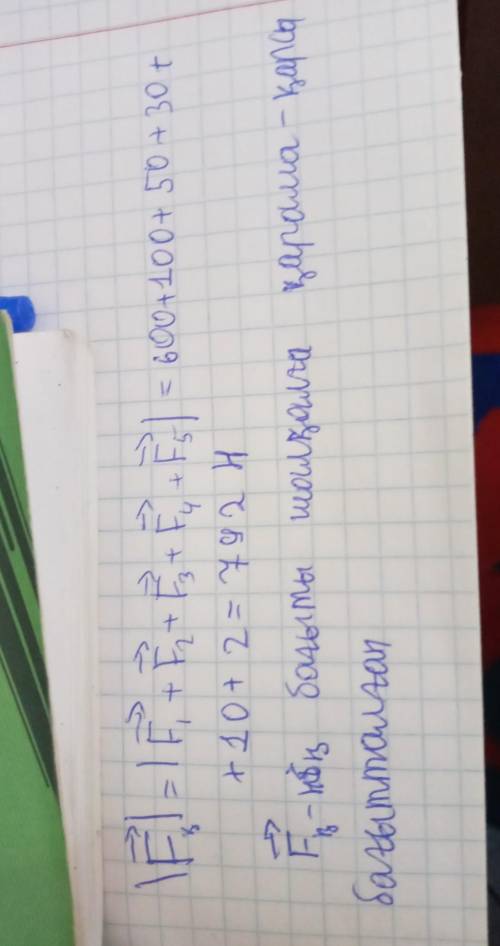 |F⃗қ| = |F⃗₁ + F⃗₂ + F⃗₃ + F⃗₄ + F⃗₅| = 600+100+50+30+
+10+2=792 Н
F⃗қ-нің бағыты шалқаға қарама-қарсы
бағытталған